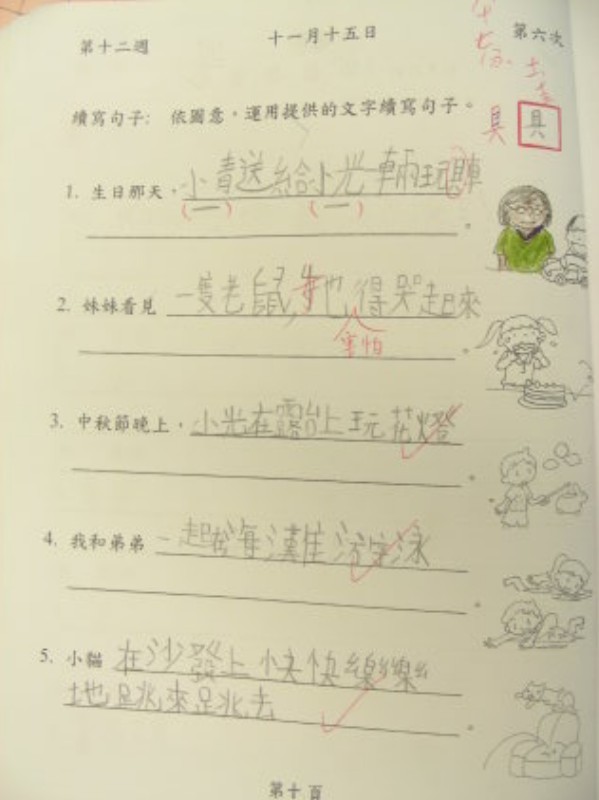 第十二週 十一月十五日 第六次
續寫句子: 依圖意，運用提供的文字續寫句子。
具 具
1. 生日那天，小青送給小光一輛玩具車
(一) (一)
。
2. 妹妹看見 一隻老鼠，她得哭起來
害怕
。
3. 中秋節晚上，小光在露台上玩花燈
。
4. 我和弟弟 一起於海灘游泳
。
5. 小貓 在沙發上快快樂樂
地跳來跳去
。
第十頁